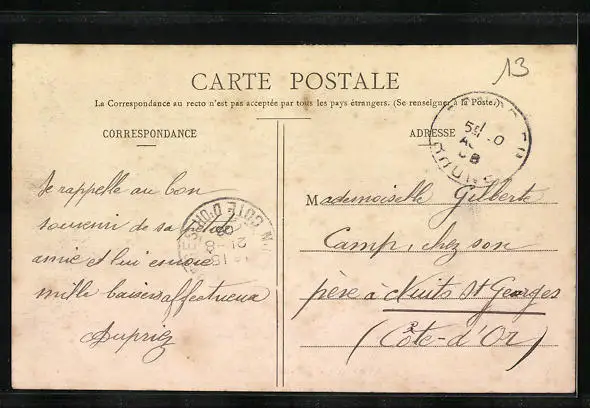 13
CARTE POSTALE
La Correspondance au recto n'est pas acceptée par tous les pays étrangers. (Se renseigner à la Poste.)
CORRESPONDANCE
Je rappelle au bon
souvenir de sa
amie et lui envoie
mille baisers affectueux
Dupriez
COTE-D'OR
21 -8
08
ADRESSE
Mademoiselle Gilberte
Camp, chez son
père à Nuits St Georges
(Côte-d'Or)